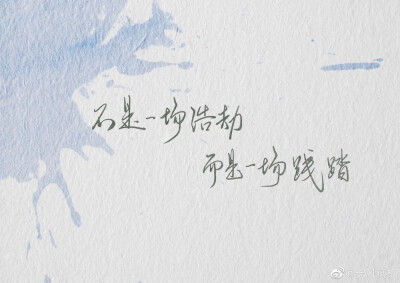 不是一场浩劫
而是一场践踏